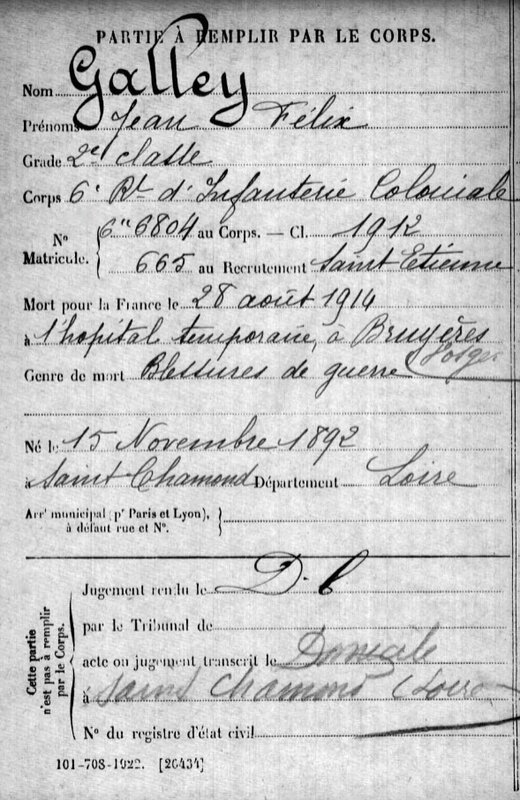 PARTIE À REMPLIR PAR LE CORPS.
Nom Galley
Prénoms Jean Félix
Grade 2e classe
Corps 6e Rt d'Infanterie Coloniale
N° Matricule. { 6804 au Corps. — Cl. 1912
665 au Recrutement Saint Etienne
Mort pour la France le 28 août 1914
à l'hopital temporaire, à Bruyères
Vosges
Genre de mort Blessures de guerre
Né le 15 Novembre 1892
à Saint Chamond Département Loire
Arrt municipal (pr Paris et Lyon), à défaut rue et N°. {
Cette partie n'est pas à remplir par le Corps. {
Jugement rendu le D.C
par le Tribunal de
acte ou jugement transcrit le Domicile
à Saint Chamond (Loire)
N° du registre d'état civil
101-708-1922. [26434]